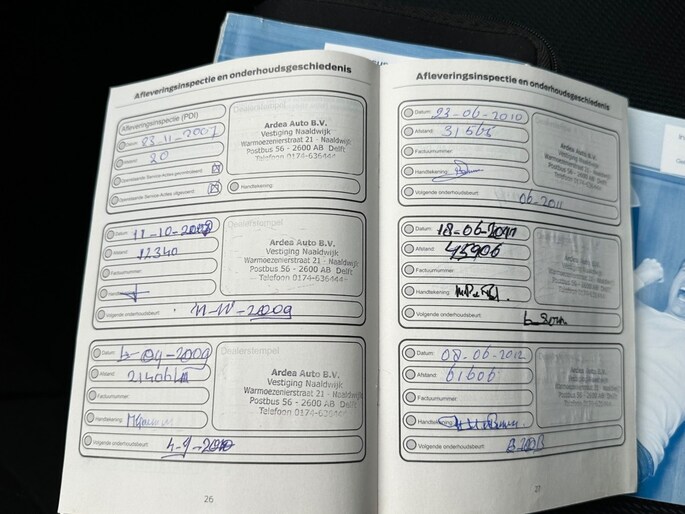 Afleveringsinspectie en onderhoudsgeschiedenis
Afleveringsinspectie (PDI)
Datum: 23-11-2007
Afstand: 20
Handtekening:
Dealerstempel
Ardea Auto B.V.
Vestiging Naaldwijk
Warmoezenierstraat 21 - Naaldwijk
Postbus 56 - 2600 AB Delft
Telefoon 0174-636444
Datum: 11-10-2008
Afstand: 12340
Factuurnummer:
Handtekening:
Volgende onderhoudsbeurt: 11-10-2009
Ardea Auto B.V.
Vestiging Naaldwijk
Warmoezenierstraat 21 - Naaldwijk
Postbus 56 - 2600 AB Delft
Telefoon 0174-636444
Datum: 4-09-2009
Afstand: 21406
Factuurnummer:
Handtekening:
Volgende onderhoudsbeurt: 4-9-2010
Dealerstempel
Ardea Auto B.V.
Vestiging Naaldwijk
Warmoezenierstraat 21 - Naaldwijk
Postbus 56 - 2600 AB Delft
Telefoon 0174-636444
26
Afleveringsinspectie en onderhoudsgeschiedenis
Datum: 23-06-2010
Afstand: 31566
Factuurnummer:
Handtekening:
Volgende onderhoudsbeurt: 06-2011
Ardea Auto B.V.
Vestiging Naaldwijk
Datum: 18-06-2011
Afstand: 45906
Factuurnummer:
Handtekening:
Volgende onderhoudsbeurt:
Datum: 08-06-2012
Afstand: 61606
Factuurnummer:
Handtekening:
Volgende onderhoudsbeurt:
27